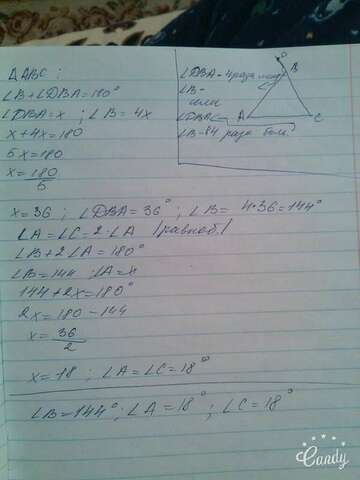 △ABC:
∠B+∠DBA=180°
∠DBA=x ; ∠B=4x
x+4x=180
5x=180
x=180/5
D
B
A
C
∠DBA-4 раза
∠B-
или
∠DBA
∠B-84 раза бол.
x=36 ; ∠DBA=36° ; ∠B= 4*36=144°
∠A=∠C=2∙∠A /равноб./
∠B+2∠A=180°
∠B=144 ;∠A=x
144+2x=180°
2x=180-144
x=36/2
x=18 ; ∠A=∠C=18°
∠B=144° ; ∠A=18° ; ∠C=18°
Candy